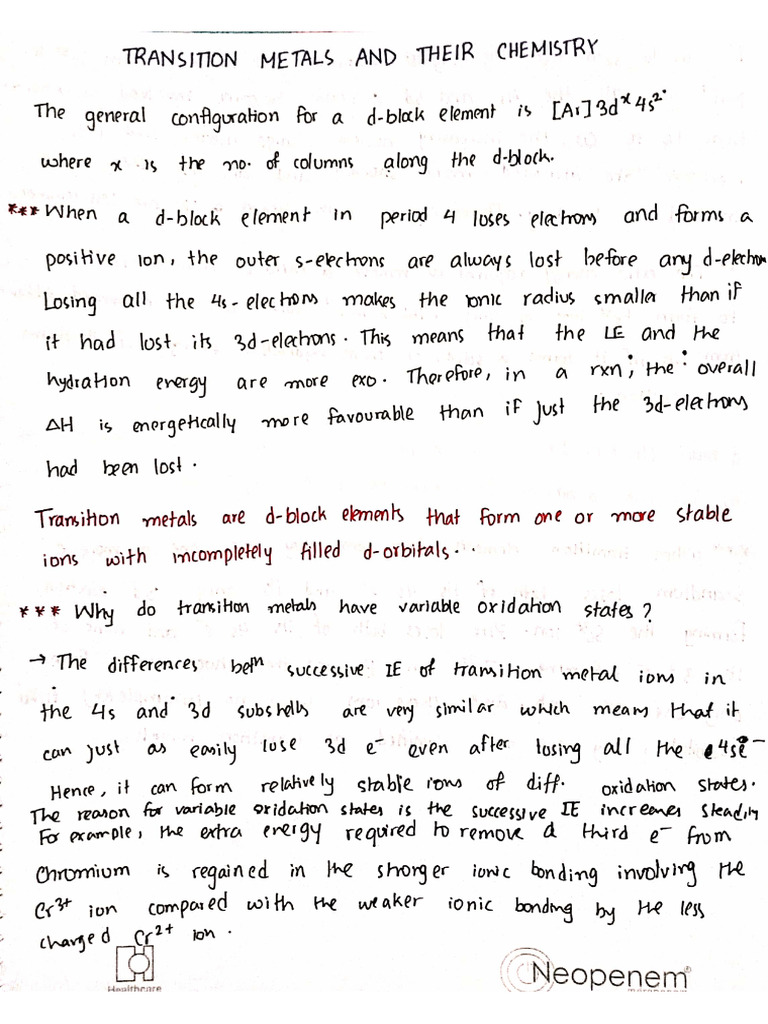 TRANSITION METALS AND THEIR CHEMISTRY
The general configuration for a d-block element is [Ar]3dˣ4s²
where x is the no. of columns along the d-block.
*** When a d-block element in period 4 loses electrons and forms a
positive ion, the outer s-electrons are always lost before any d-electron
Losing all the 4s-electrons makes the ionic radius smaller than if
it had lost its 3d-electrons. This means that the LE and the
hydration energy are more exo. Therefore, in a rxn, the overall
ΔH is energetically more favourable than if just the 3d-electrons
had been lost.
Transition metals are d-block elements that form one or more stable
ions with incompletely filled d-orbitals.
*** Why do transition metals have variable oxidation states?
→ The differences betⁿ successive IE of transition metal ions in
the 4s and 3d subshells are very similar which means that it
can just as easily lose 3d e⁻ even after losing all the 4se⁻
Hence, it can form relatively stable ions of diff. oxidation states.
The reason for variable oxidation states is the successive IE increases steadily
For example, the extra energy required to remove a third e⁻ from
Chromium is regained in the stronger ionic bonding involving the
Cr³⁺ ion compared with the weaker ionic bonding by the less
charged Cr²⁺ ion.
Healthcare
Neopenem®